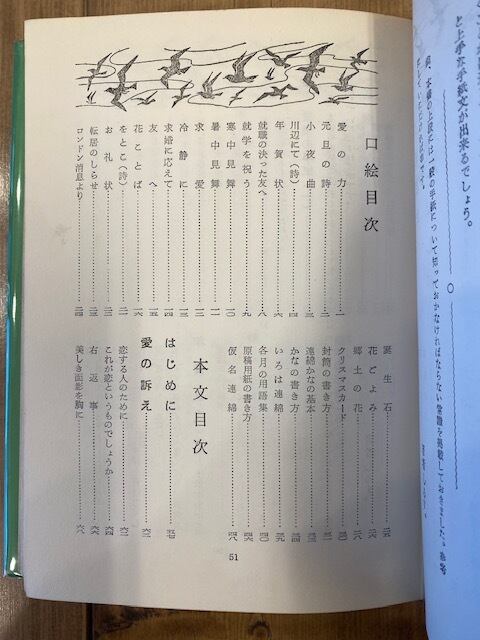 と上手な手紙文が出来るでしょう。
○
本書の上段には一般の手紙について知っておかなければならない常識を掲載しておきました。参考
口絵目次
愛の力……一
元旦の詩……二
小夜曲……三
川辺にて(詩)……四
年賀状……六
就職の決った友へ……八
就学を祝う……九
寒中見舞……一〇
暑中見舞……一一
求愛……一二
冷静に……一三
求婚に応えて……一四
友へ……一五
花ことば……一六
をとこ(詩)……二一
お礼状……二二
転居のしらせ……二三
ロンドン消息より……二四
誕生石……二五
花ごよみ……二六
郷土の花……
クリスマスカード……三〇
封筒の書き方……三一
連綿かなの基本……
かなの書き方……三四
いろは連綿……三九
各月の用語集……四〇
原稿用紙の書き方……
仮名連綿……四八
本文目次
はじめに……五七
愛の訴え……六一
恋する人のために……六二
これが恋というものでしょうか……六四
右返事……六六
美しき面影を胸に……六八
51